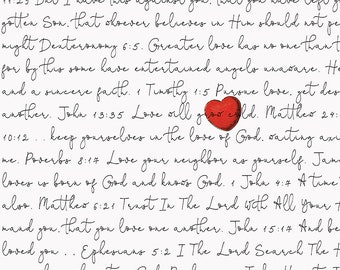 11:25 But I have this against you, that you have left yo
gotten Son, that whoever believes in Him should not pe
might Deuteronomy 6:5. Greater love has no one than t
for by this some have entertained angels unaware. He
and a sincere faith. 1 Timothy 1:5 Pursue love, yet des
another. John 13:35 Love will grow cold. Matthew 24:
10:12 . . keep yourselves in the love of God, waiting anxi
me. Proverbs 8:17 Love your neighbor as yourself. Jam
loves is born of God and knows God. 1 John 4:7 A time t
also. Matthew 6:21 Trust In The Lord With All Your H
mand you, that you love one another. John 15:17 And be
loved you . . Ephesians 5:2 I The Lord Search The H